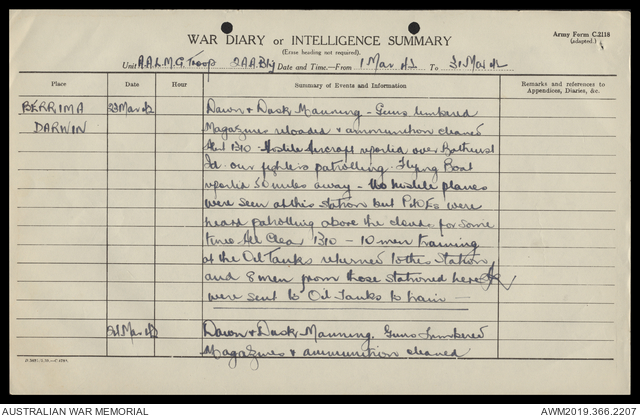 WAR DIARY or INTELLIGENCE SUMMARY
(Erase heading not required).
Army Form C.2118
(adapted.)
Unit A.A.L.M.G Troop 2 A.A. Bty Date and Time.—From 1 Mar 42 To 31 Mar 42
Place Date Hour Summary of Events and Information Remarks and references to Appendices, Diaries, &c.
BERRIMA 23 Mar 42 Dawn & Dusk Manning - Guns limbered
DARWIN Magazines reloaded & ammunition cleaned
1310 - Hostile Aircraft reported over Bathurst
Id. our fighters patrolling. Flying Boat
reported 50 miles away - No hostile planes
were seen at this station but P40Es were
heard patrolling above the clouds for some
time. All Clear 1310 - 10 men training
at the Oil Tanks returned to this Station
and 8 men from those stationed here
were sent to Oil Tanks to train —
24 Mar 42 Dawn & Dusk Manning. Guns Limbered
Magazines & ammunition cleaned
AUSTRALIAN WAR MEMORIAL
AWM2019.366.2207